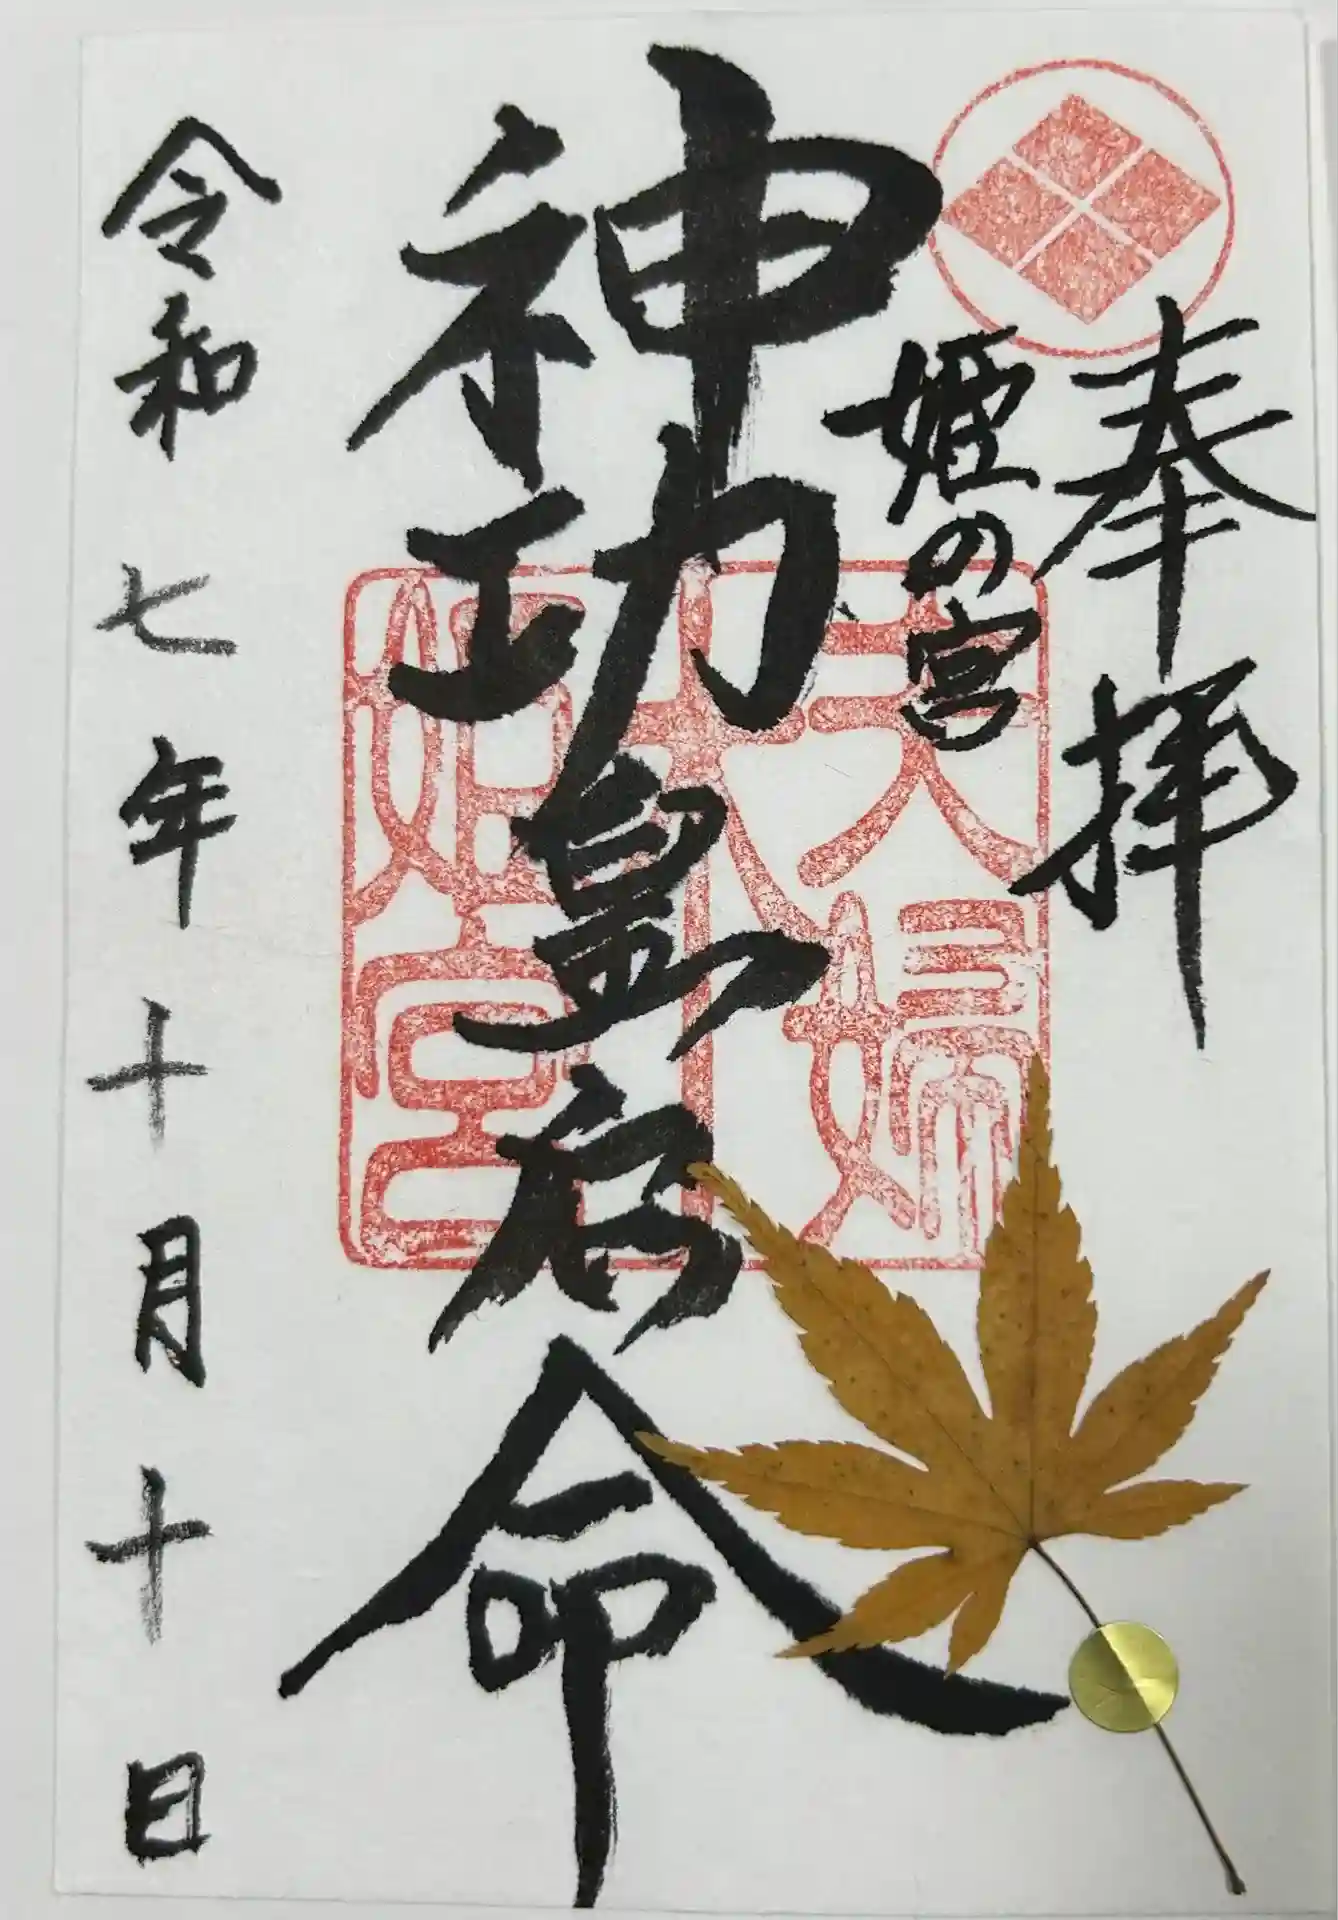 奉拝
姫の宮
神功皇后命
夫婦
木
姫宮
令和七年十月十日